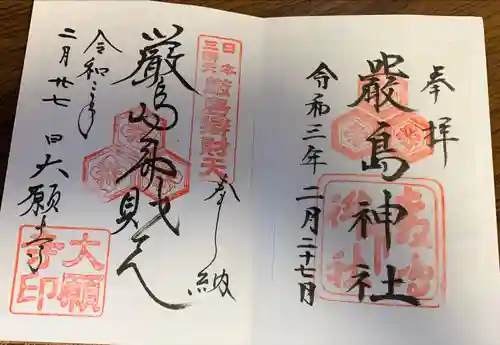 奉拝
嚴島神社
令和三年二月二十七日
嚴島神社
奉納
日本三弁天
厳島弁財天
厳島弁財天
令和三年
二月廿七日
大願寺
大願寺印